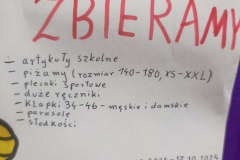 ZBIERAMY
- artykuły szkolne
- piżamy (rozmiar 140-180, XS-XXL)
- plecaki sportowe
- duże ręczniki
- klapki 34-46 - męskie i damskie
- parasole
- słodkości
17.10.2024